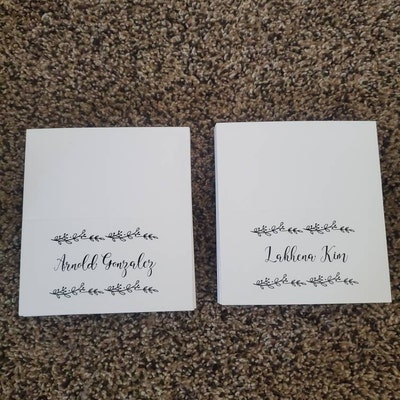 Arnold Gonzalez
Lakhena Kim